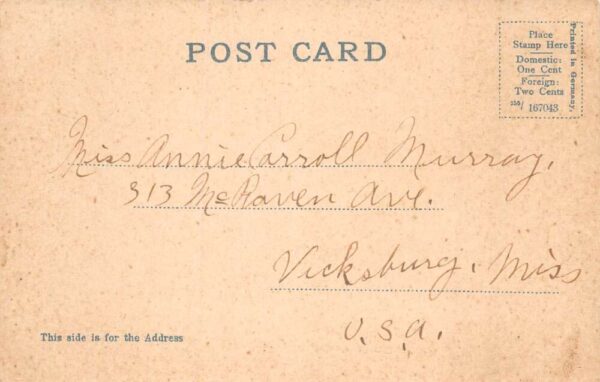 POST CARD
Place
Stamp Here
Domestic:
One Cent
Foreign:
Two Cents
116/ 167043
Printed in Germany.
Miss Annie Carroll Murray,
313 McRaven Ave.
Vicksburg, Miss
U.S.A.
This side is for the Address